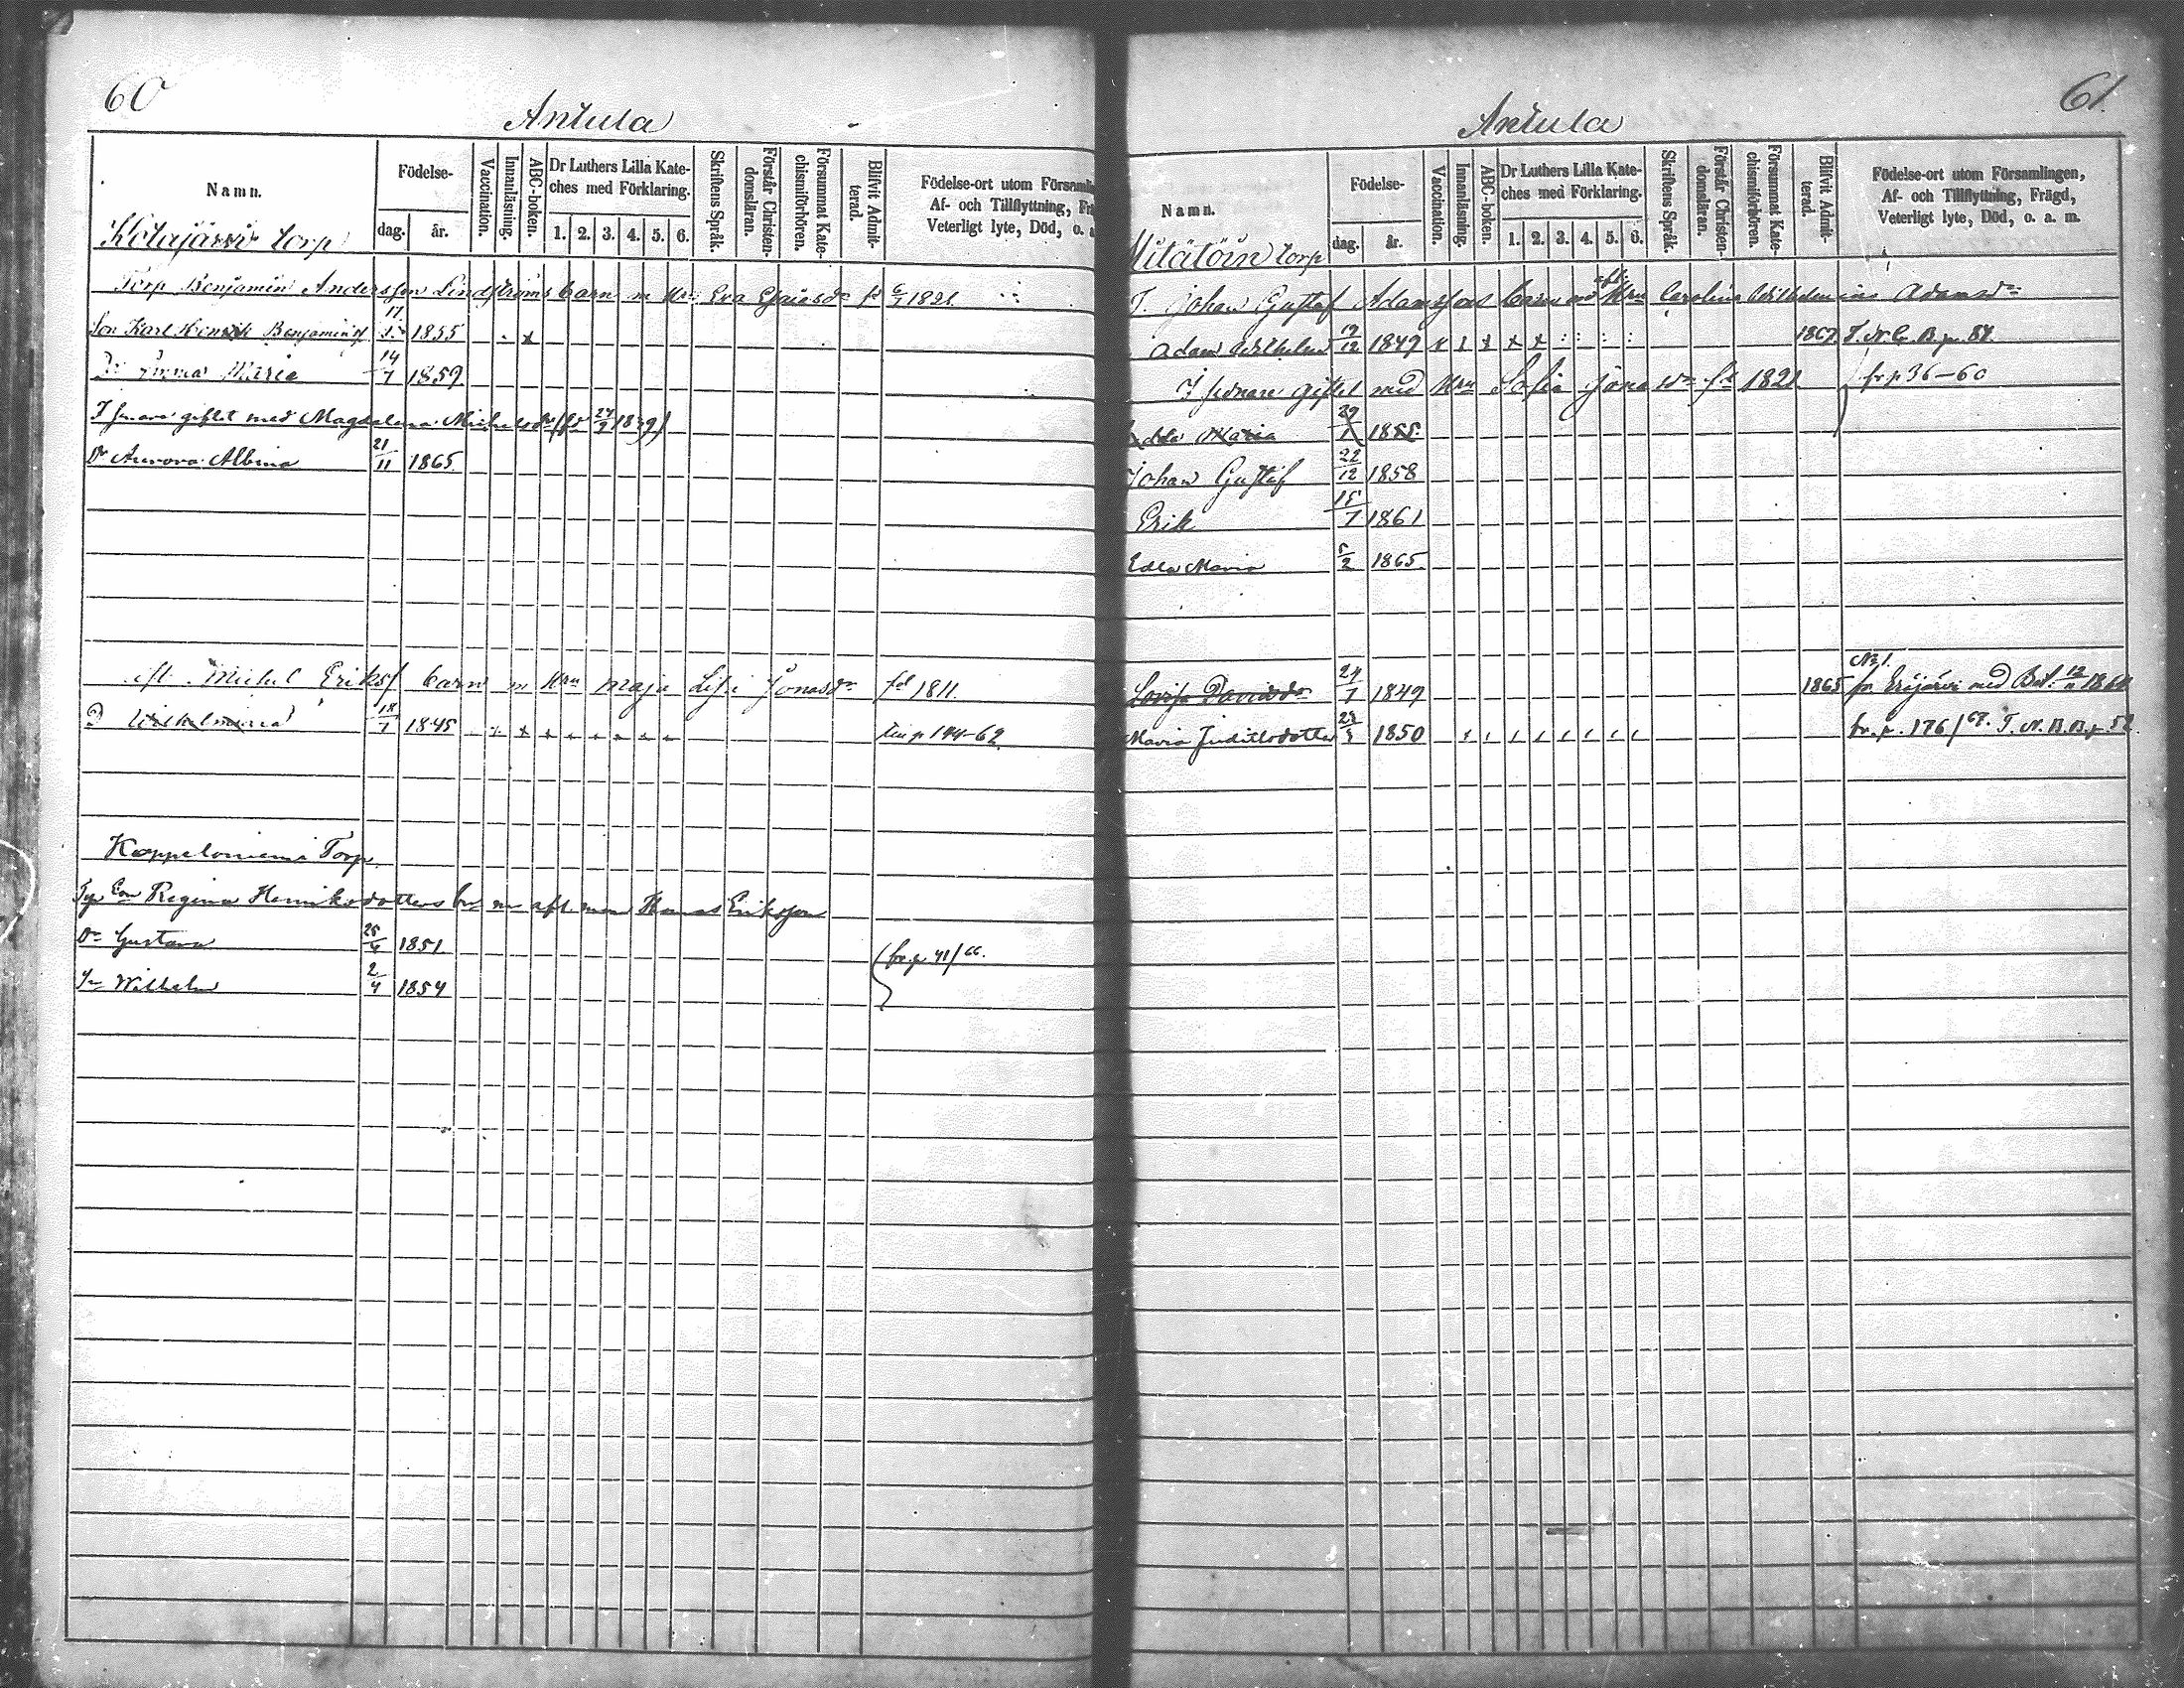 60
Antula
Namn.
Födelse-
dag.
år.
Vaccination.
Innanläsning.
ABC-boken.
Dr Luthers Lilla Kate-
ches med Förklaring.
1. 2. 3. 4. 5. 6.
Skriftens Språk.
Förstår Christen-
domsläran.
Försummat Kate-
chismiförhören.
Blifvit Admit-
terad.
Födelse-ort utom Församlin
Af- och Tillflyttning, Frä
Veterligt lyte, Död, o. a
Kotajärvi torp
Torp Benjamin Andersson Lindströms barn m Hru Eva Esaiasdr fd 1821.
Son Karl Henrik Benjaminss 17 1855
Dr Emma Maria 14/7 1859
I senare giftet med Magdalena Michelsdr (fd 1839)
Dr Aurora Albina 21/11 1865
aft. Michel Erikss barn m Hru Maja Lisa Jonasdr fd 1811.
D Wilhelmina 18/7 1845 p 144-62
Kappeloniemi Torp
Regina Henriksdotters br m aft man Thomas Eriksson
Dr Gustava 25/4 1851. fr. p 41/66.
Sn Wilhelm 2/4 1854
61.
Antula
Namn.
Födelse-
dag.
år.
Vaccination.
Innanläsning.
ABC-boken.
Dr Luthers Lilla Kate-
ches med Förklaring.
1. 2. 3. 4. 5. 6.
Skriftens Språk.
Förstår Christen-
domsläran.
Försummat Kate-
chismiförhören.
Blifvit Admit-
terad.
Födelse-ort utom Församlingen,
Af- och Tillflyttning, Frägd,
Veterligt lyte, Död, o. a. m.
torp
T. Johan Gustaf Adamssons barn md afl. Hru Carolina Wilhelmina Adamsdr
Adam Wilhelm 19/12 1849 1867. T. N. C. B. p. 87.
I senare giftet med Hru Sofia Jonasdr fd 1821 fr p 36-60
Edla Maria 29/1 1855.
Johan Gustaf 22/12 1858
Erik 15/7 1861
Edla Maria 5/2 1865
Lovisa Davidsdr 24/7 1849 1865 No 1. fr. Eräjärvi med Bet.
Maria Judithsdotter 1850 fr. p. 176/67. T. N. B. B. p 52